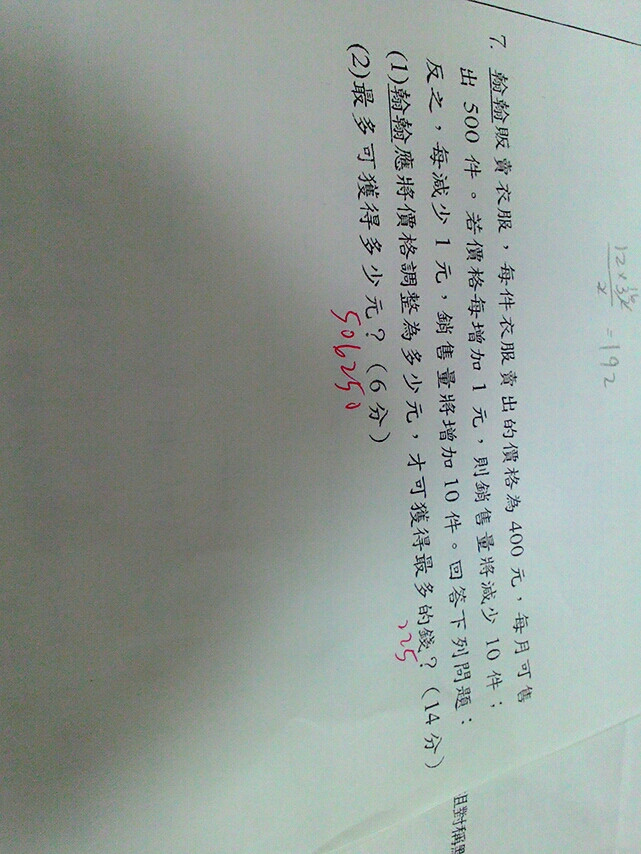 7. 翰翰販賣衣服，每件衣服賣出的價格為 400 元，每月可售
出 500 件。若價格每增加 1 元，則銷售量將減少 10 件；
反之，每減少 1 元，銷售量將增加 10 件。回答下列問題：
(1)翰翰應將價格調整為多少元，才可獲得最多的錢？(14 分)
225
(2)最多可獲得多少元？(6 分)
506250
= 192
對稱